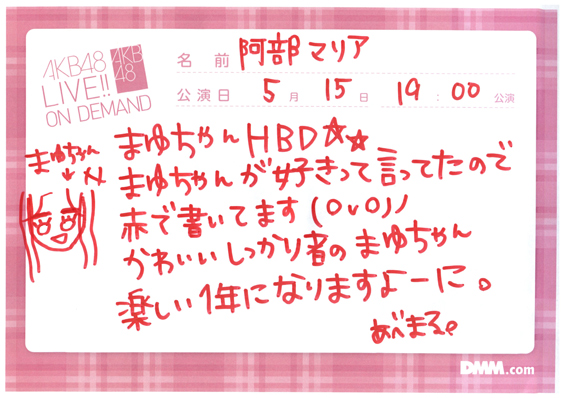 AKB48
LIVE!!
ON DEMAND
AKB
48
名 前 阿部マリア
公演日 5月 15日 19:00 公演
まゆちゃん
↓
まゆちゃんHBD☆☆
まゆちゃんが好きって言ってたので
赤で書いてます(OvO)ノ
かわいいしっかり者のまゆちゃん
楽しい1年になりますよーに。
あべまる。
DMM.com